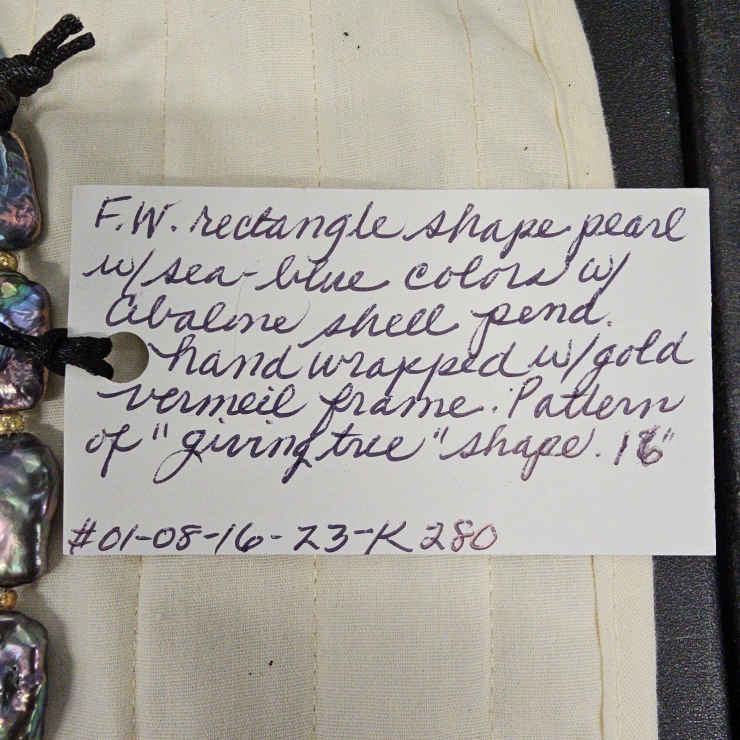 F.W. rectangle shape pearl
w/sea-blue colors w/
Abalone shell pend.
hand wrapped w/gold
vermeil frame. Pattern
of "giving tree" shape. 16"
#01-08-16-23-K280